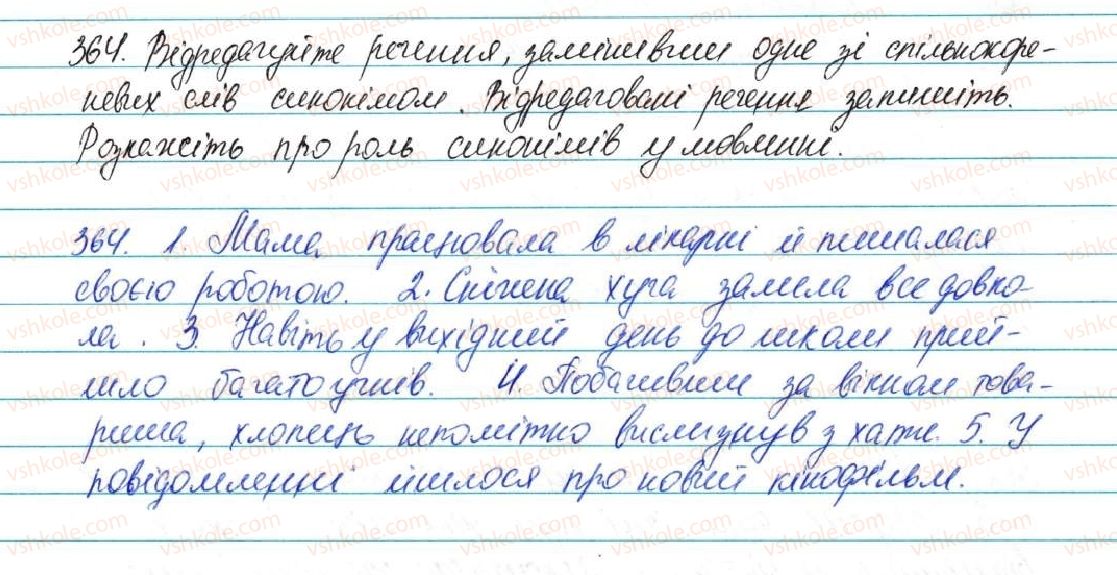 364. Відредагуйте речення, замінивши одне зі спільнокоре-
невих слів синонімом. Відредаговані речення запишіть.
Розкажіть про роль синонімів у мовленні.
364. 1. Мама працювала в лікарні й пишалася
своєю роботою. 2. Сніжена хуга замела все довко-
ла. 3. Навіть у вихідний день до школи прий-
шло багато учнів. 4. Побачивши за вікном това-
риша, хлопець непомітно вислизнув з хати. 5. У
повідомленні йшлося про новий кінофільм.